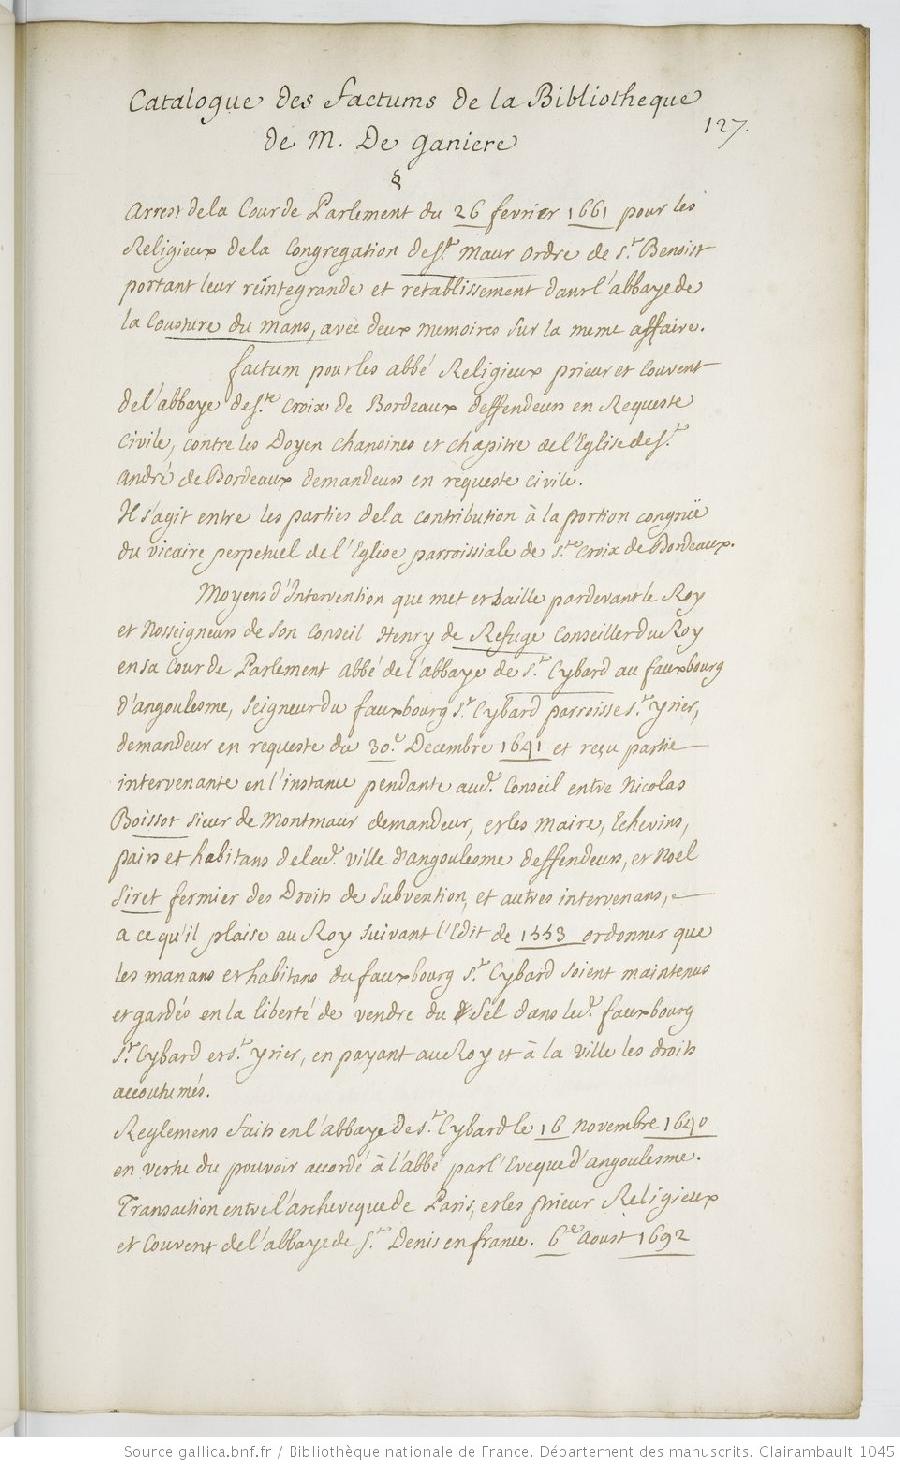 Catalogue des factums de la Bibliotheque
de M. De ganiere
127.
§
Arrest de la Cour de Parlement du 26 fevrier 1661 pour les
Religieux de la Congregation de St. Maur ordre de St. Benoist
portant leur reïntegrande et retablissement dans l'abbaye de
la Cousture du mans, avec deux memoires sur la mime affaire.
factum pour les abbé Religieux prieur et Couvent
de l'abbaye de Ste. Croix de Bordeaux deffendeurs en Requeste
Civile, contre les Doyen chanoines et chapitre de l'Eglise de St.
André de Bordeaux demandeurs en requeste civile.
Il s'agit entre les parties de la contribution à la portion congruë
du vicaire perpetuel de l'Eglise parroissiale de Ste. Croix de Bordeaux.
Moyens d'Intervention que met et baille pardevant le Roy
et Nosseigneurs de son Conseil Henry de Refuge Conseiller du Roy
en sa Cour de Parlement abbé de l'abbaye de St. Cybard au fauxbourg
d'angoulesme, Seigneur du fauxbourg St. Cybard parroisse St. yrier,
demandeur en requeste du 30e. Decembre 1641 et reçu partie
intervenante en l'instance pendante aud. Conseil entre Nicolas
Boissot sieur de Montmaur demandeur, et les Maire, Echevins,
pairs et habitans de lad. ville d'angoulesme deffendeurs, et Noel
Siret fermier des Droits de Subvention, et autres intervenans,
a ce qu'il plaise au Roy suivant l'Edit de 1553 ordonner que
les manans et habitans du fauxbourg St. Cybard soient maintenus
et gardés en la liberté de vendre du Sel dans led. fauxbourg
St. Cybard et St. yrier, en payant au Roy et à la ville les droits
accoutumés.
Reglemens faits en l'abbaye de St. Cybard le 16 novembre 1640
en vertu du pouvoir accordé à l'abbé par l'Eveque d'angoulesme.
Transaction entre l'archeveque de Paris, et les prieur Religieux
et Couvent de l'abbaye de St. Denis en france. 6e. Aoust 1692
Source gallica.bnf.fr / Bibliothèque nationale de France. Département des manuscrits. Clairambault 1045